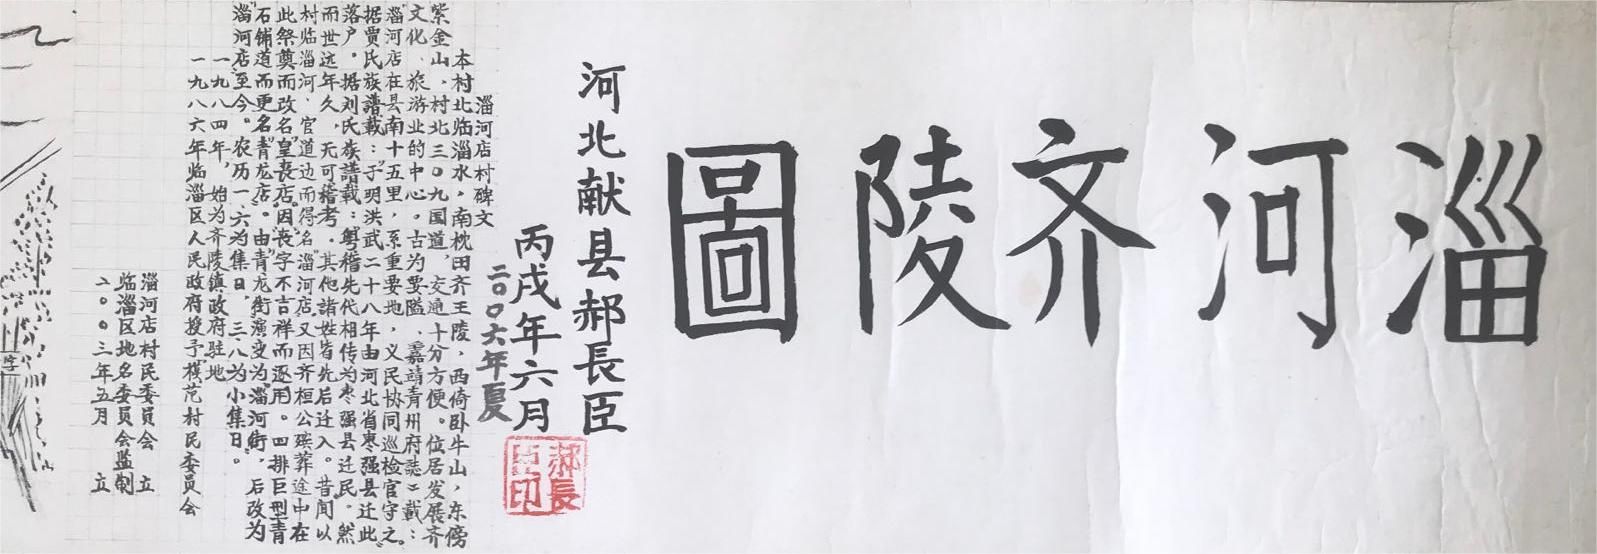 淄河齐陵圖
河北献县郝長臣
丙戌年六月
二〇〇六年夏
郝長臣印
淄河店村碑文
本村北临淄水，南枕田齐王陵，西倚卧牛山，东傍
紫金山，村北三〇九国道，交通十分方便。位居发展齐
文化、旅游业的中心。古为要隘、嘉靖青州府誌二载：
淄河店在县南十五里，系重要地，义民协同巡检官守之。
据贾氏族譜載：于明洪武二十八年由河北省枣强县迁此
落户。据刘氏族譜載：粤稽先代相传为枣强县迁民。然
而世远年久，无可稽考。其他諸姓皆先后迁入。昔闻以
村临淄河、官道边而得名淄河店，又因齐桓公殡葬途中在
此祭奠而改名皇丧店。因丧字不吉祥而逐用。四排巨型青
石铺道而更名青龙店。由青龙街演变为淄河街，后改为
淄河店至今。农历一、六为集日，三、八为小集日。
一九八四年，始为齐陵镇政府驻地
一九八六年临淄区人民政府授予模范村民委员会
淄河店村民委員会 立
临淄区地名委员会监制
二〇〇三年五月 立